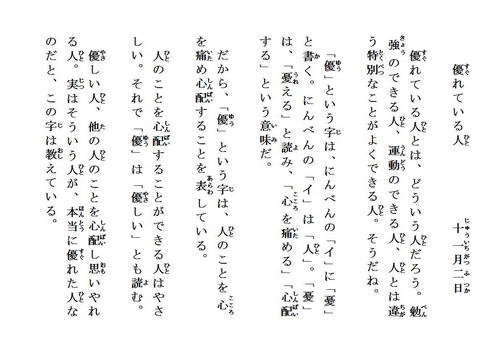 優れている人　　十一月二日
優れている人とは、どういう人だろう。勉
強のできる人、運動のできる人、人とは違
う特別なことがよくできる人。そうだね。
「優」という字は、にんべんの「イ」に「憂」
と書く。にんべんの「イ」は「人」。「憂」
は、「憂える」と読み、「心を痛める」「心配
する」という意味だ。
だから、「優」という字は、人のことを心
を痛め心配することを表している。
人のことを心配することができる人はやさ
しい。それで「優」は「優しい」とも読む。
優しい人、他の人のことを心配し思いやれ
る人。実はそういう人が、本当に優れた人な
のだと、この字は教えている。